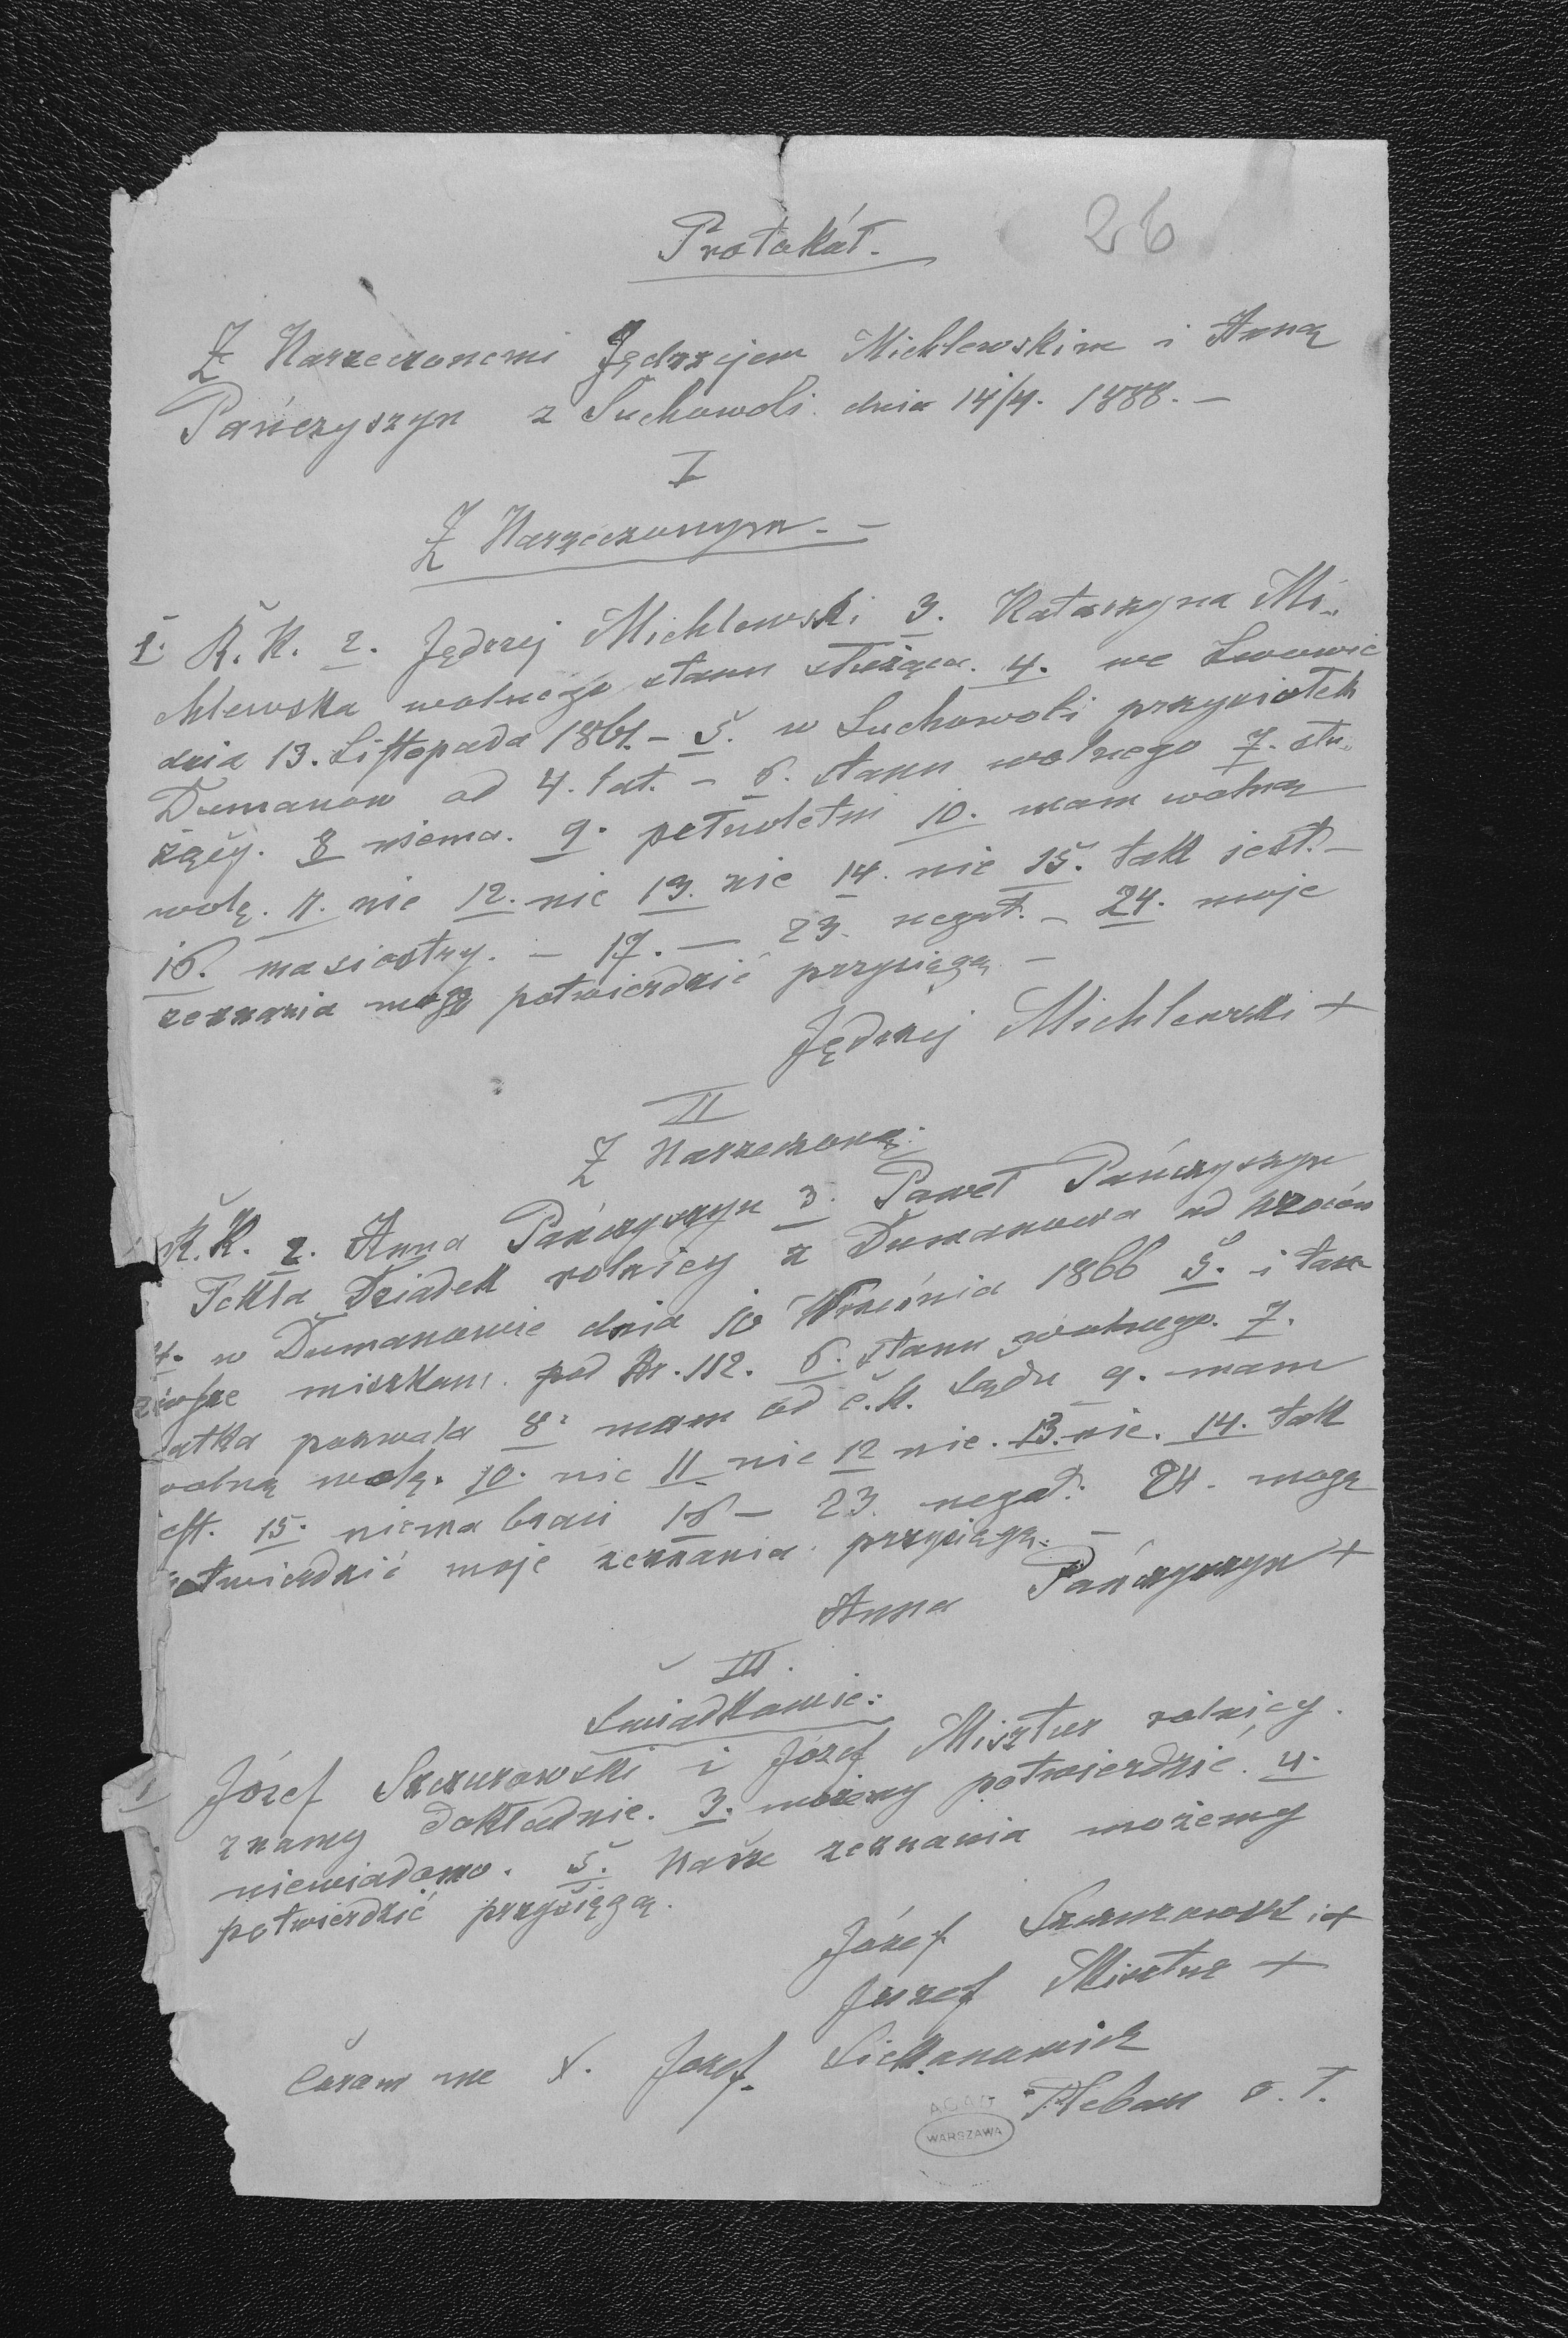 26
Protokół.
Z Narzeczonemi Jędrzejem Michlewskim i Anną
Pańczyszyn z Suchowoli dnia 14/4. 1888. –
I
Z Narzeczonym. –
1. R. K. 2. Jędrzej Michlewski 3. Katarzyna Mi-
chlewska wolnego stanu służąca. 4. we Lwowie
dnia 13. Listopada 1861. – 5. w Suchowoli przysiołek
Dumanow od 4. lat. – 6. stanu wolnego 7. słu-
żący. 8 niema. 9. pełnoletni 10. mam wolną
wolę. 11. nie 12. nie 13. nie 14. nie 15. tak jest. –
16. ma siostry. – 17. — 23. negat. – 24. moje
zeznania mogę potwierdzić przysięgą –
Jędrzej Michlewski +
II
Z Narzeczoną:
R. K. 2. Anna Pańczyszyn 3. Paweł Pańczyszyn
Tekla Dziadek rolnicy z Dumanowa od
4. w Dumanowie dnia 10 Września 1866 5. i tam
mieszkam. pod Nr. 112. 6. stanu wolnego. 7.
atka pozwala 8. mam od c. k. Sądu 9. mam
wolną wolę. 10. nie 11 nie 12 nie. 13. nie. 14. tak
jest. 15. niema braci 16 – 23. negat. 24. mogę
potwierdzić moje zeznania przysięgą. –
Anna Pańczyszyn +
III.
Swiadkowie:
1 Józef Szczurowski i Józef Misztur rolnicy.
znamy dokładnie. 3. możemy potwierdzić. 4.
niewiadomo. 5. Nasze zeznania możemy
potwierdzić przysięgą.
Józef Szczurowski +
Juzef Misztur +
Coram me X. Jozef
Pleban o. ł.
AGAD
WARSZAWA